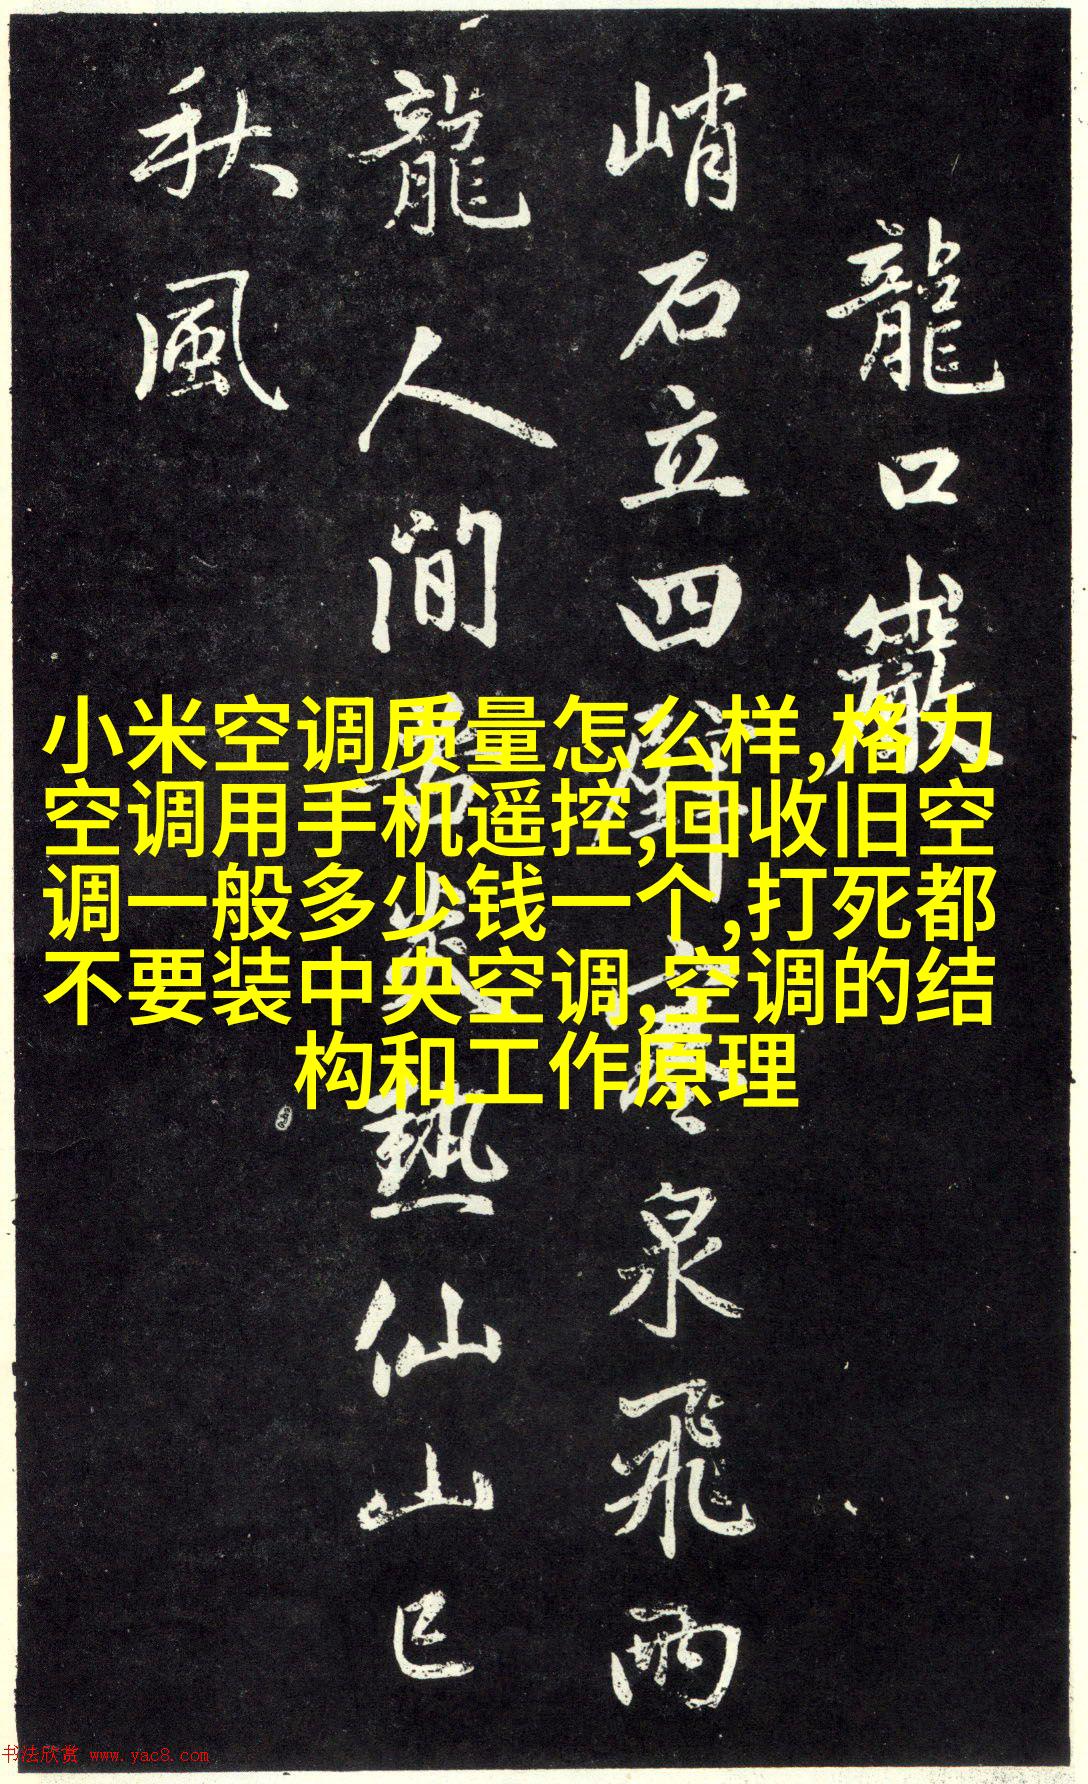 龍口巖
峭石立四壁寒泉飛雨
龍人間苦炎熱仙山已
秋風
小米空调质量怎么样,格力
空调用手机遥控,回收旧空
调一般多少钱一个,打死都
不要装中央空调,空调的结
构和工作原理
书法欣赏 www.yac8.com